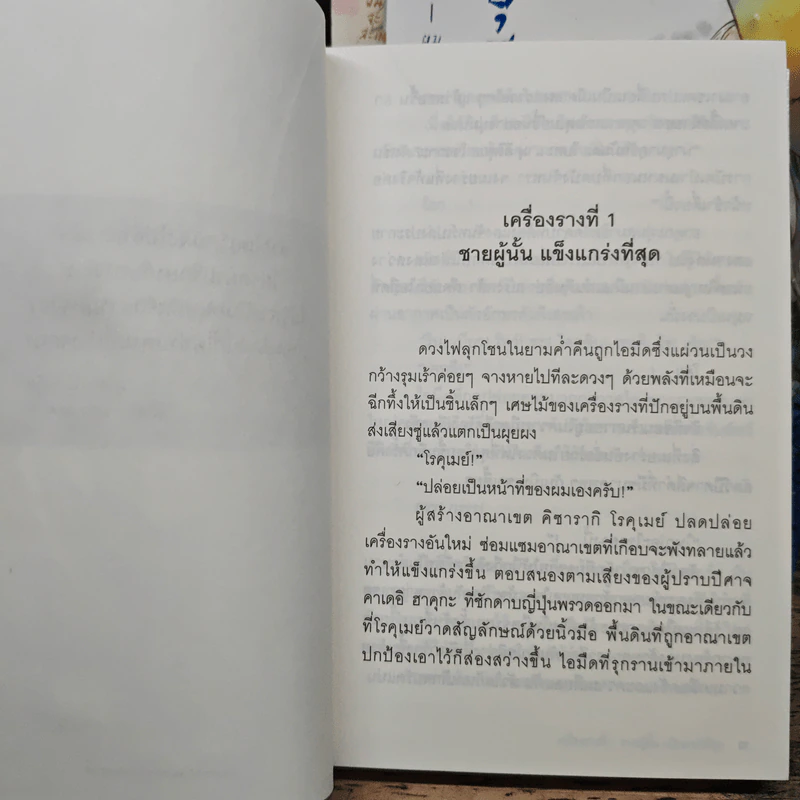 เครื่องรางที่ 1
ชายผู้นั้น แข็งแกร่งที่สุด
ดวงไฟลุกโชนในยามค่ำคืนถูกไอมืดซึ่งแผ่วนเป็นวง
กว้างรุมเร้าค่อยๆ จางหายไปทีละดวงๆ ด้วยพลังที่เหมือนจะ
ฉีกทิ้งให้เป็นชิ้นเล็กๆ เศษไม้ของเครื่องรางที่ปักอยู่บนพื้นดิน
ส่งเสียงซู่แล้วแตกเป็นผุยผง
“โรคุเมย์!”
“ปล่อยเป็นหน้าที่ของผมเองครับ!”
ผู้สร้างอาณาเขต คิซารากิ โรคุเมย์ ปลดปล่อย
เครื่องรางอันใหม่ ซ่อมแซมอาณาเขตที่เกือบจะพังทลายแล้ว
ทำให้แข็งแกร่งขึ้น ตอบสนองตามเสียงของผู้ปราบปีศาจ
คาเดอิ ฮาคุกะ ที่ชักดาบญี่ปุ่นพรวดออกมา ในขณะเดียวกับ
ที่โรคุเมย์วาดสัญลักษณ์ด้วยนิ้วมือ พื้นดินที่ถูกอาณาเขต
ปกป้องเอาไว้ก็ส่องสว่างขึ้น ไอมืดที่รุกรานเข้ามาภายใน